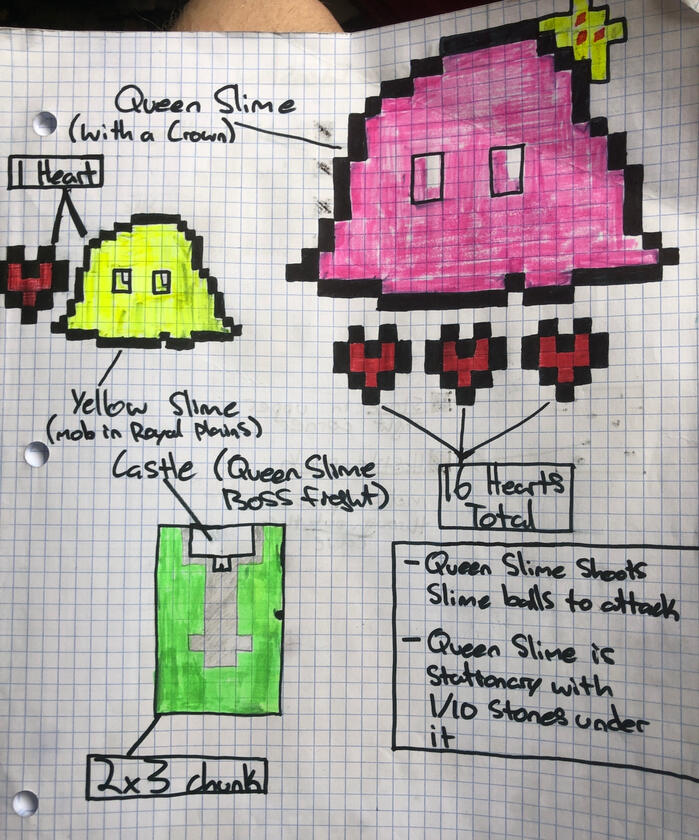 Queen Slime
(with a Crown)
1 Heart
Yellow Slime
(mob in Royal plains)
16 Hearts
Total
Castle (Queen Slime
Boss freght)
2x3 chunk
- Queen Slime Shoots
Slime balls to attack
- Queen Slime is
Stationary with
1/10 Stones under
it